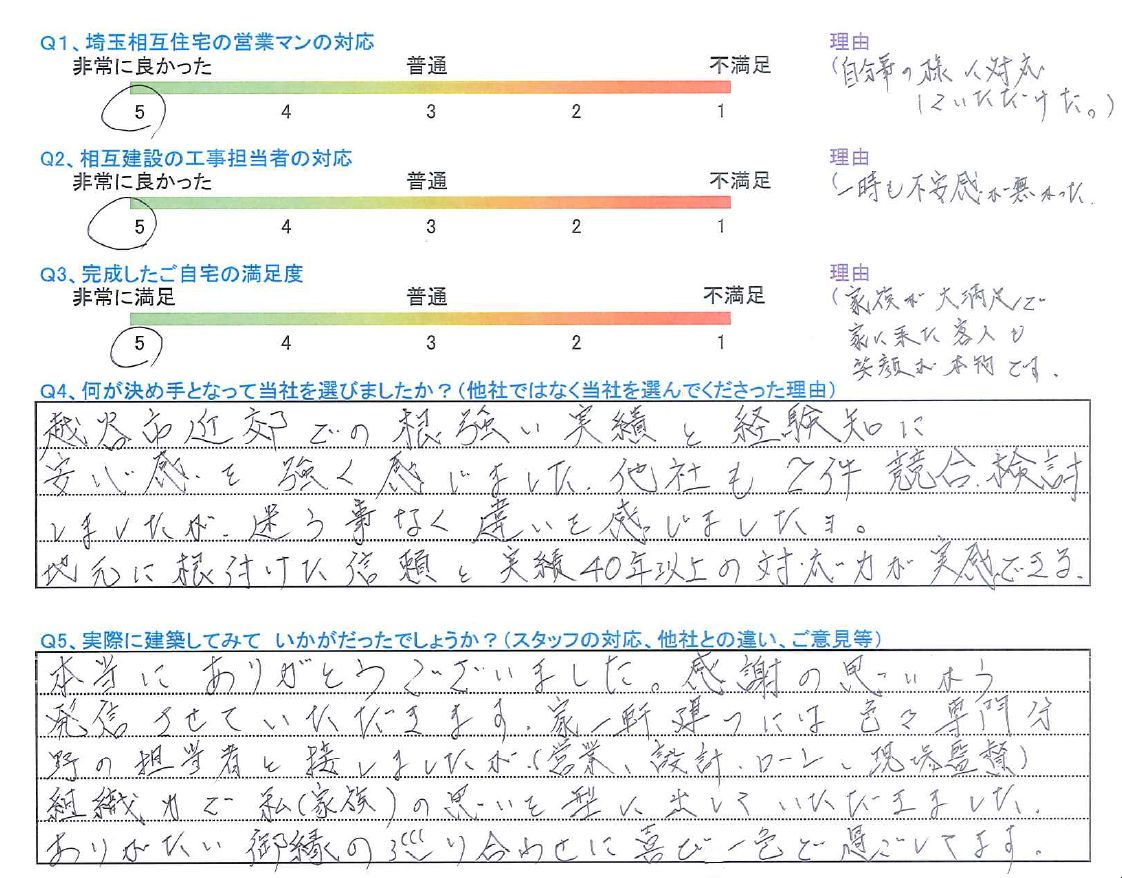 Q1、埼玉相互住宅の営業マンの対応
非常に良かった 普通 不満足
5 4 3 2 1
理由
(自分事の様に対応
していただけた。)
Q2、相互建設の工事担当者の対応
非常に良かった 普通 不満足
5 4 3 2 1
理由
(一時も不安感が無かった.
Q3、完成したご自宅の満足度
非常に満足 普通 不満足
5 4 3 2 1
理由
(家族が大満足で
家に来た客人も
笑顔が本物です.
Q4、何が決め手となって当社を選びましたか?(他社ではなく当社を選んでくださった理由)
越谷市近郊での根強い実績と経験知に
安心感を強く感じました.他社も2件競合.検討
しましたが.迷う事なく違いを感じましたヨ。
地元に根付けた信頼と実績40年以上の対応力が実感できる.
Q5、実際に建築してみて いかがだったでしょうか?(スタッフの対応、他社との違い、ご意見等)
本当にありがとうございました。感謝の思いから
発信させていただきます.家一軒建つには色々専門分
野の担当者と接しましたが.(営業、設計、ローン、現場監督)
組織力で私(家族)の思いを型に出していただきました.
ありがたい御縁の巡り合わせに喜び一色で過ごしてます.